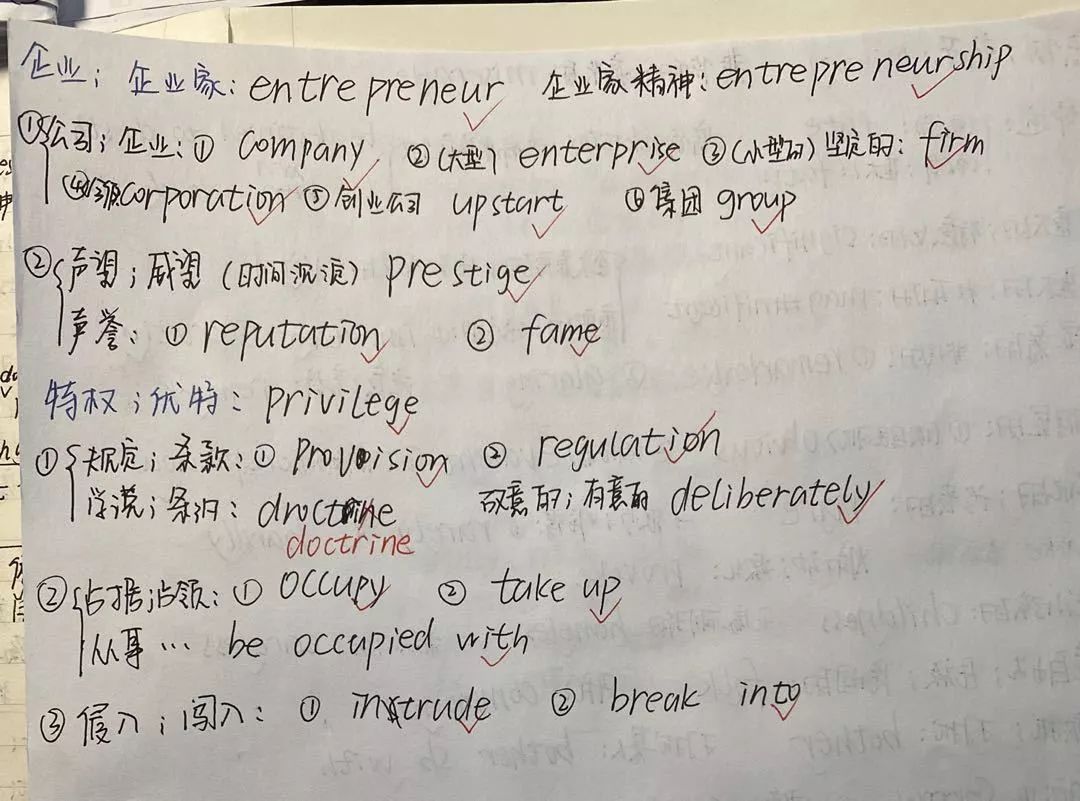 企业；企业家：entrepreneur 企业家精神：entrepreneurship
① 公司；企业：① company ②（大型）enterprise ③（小型的）坚定的：firm
④ corporation ⑤ 创业公司 upstart ⑥ 集团 group
② 声望；威望（时间沉淀）prestige
声誉：① reputation ② fame
特权；优特：privilege
① 规定；条款：① provision ② regulation
学说；条约：droctrine 故意的；有意的 deliberately
doctrine
② 占据；占领：① occupy ② take up
从事… be occupied with
③ 侵入；闯入：① intrude ② break into